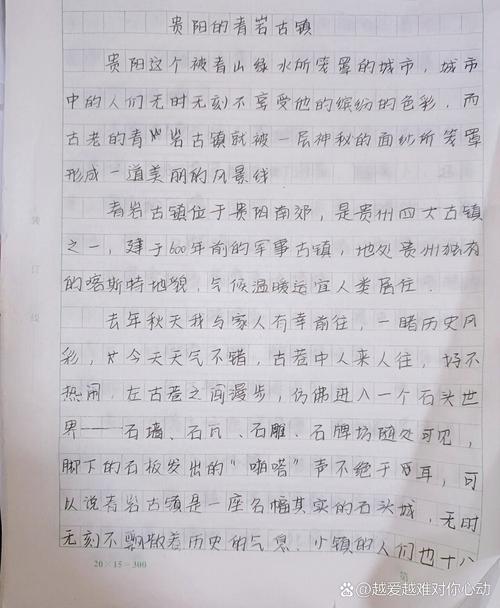 贵阳的青岩古镇
贵阳这个被青山绿水所笼罩的城市，城市
中的人们无时无刻不享受他的缤纷的色彩，而
古老的青岩古镇就被一层神秘的面纱所笼罩
形成一道美丽的风景线
青岩古镇位于贵阳南郊，是贵州四大古镇
之一，建于600年前的军事古镇，地处贵州独有
的喀斯特地貌，气候温暖适宜人类居住．
去年秋天我与家人有幸前往，一睹历史风
彩，今天天气不错，古巷中人来人往，好不
热闹，在古巷之间漫步，仿佛进入一个石头世
界——石墙、石瓦、石雕、石牌坊随处可见，
脚下的石板发出的“啪嗒”声不绝于耳，可
以说青岩古镇是一座名幅其实的石头城，无时
无刻不飘散着历史的气息．小镇的人们也十八
20×15=300
@越爱越难对你心动